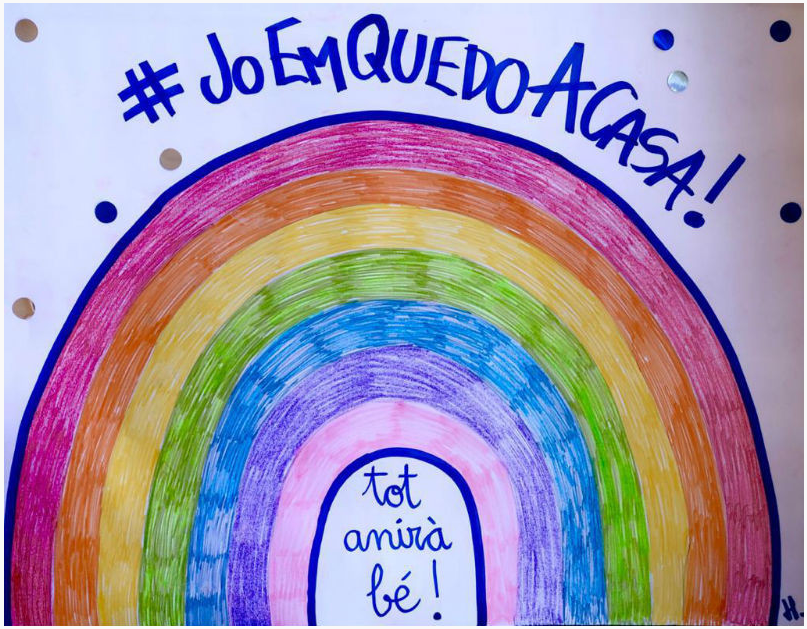 #JoEmQUEDOACASA!
tot
anirà
bé!